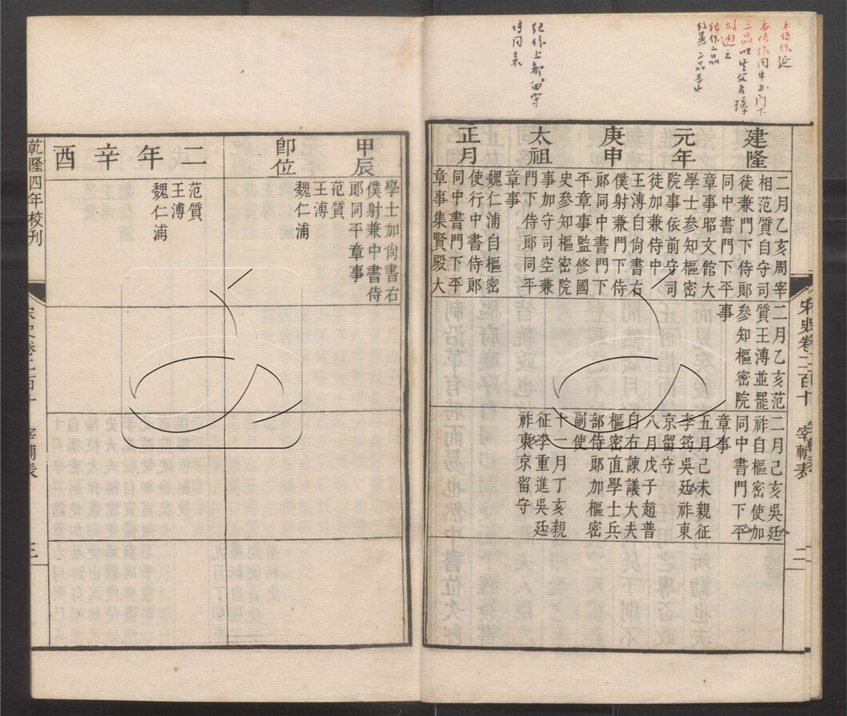 建隆
元年
庚申
太祖
正月
二月乙亥周宰
相范質自守司
徒兼門下侍郎
同中書門下平
章事昭文館大
學士參知樞密
院事依前守司
徒加兼侍中
王溥自尚書右
僕射兼門下侍
郎同中書門下
平章事監修國
史參知樞密院
事加守司空兼
門下侍郎同平
章事
魏仁浦自樞密
使行中書侍郎
同中書門下平
章事集賢殿大
二月乙亥范
質王溥並罷
參知樞密院
事
二月己亥吳廷
祚自樞密使加
同中書門下平
章事
五月己未親征
李筠吳廷祚東
京留守
八月戊子趙普
自右諫議大夫
樞密直學士兵
部侍郎加樞密
副使
十一月丁亥親
征李重進吳廷
祚東京留守
宋史卷二百十
宰輔表
二
甲辰
即位
二年辛酉
學士加尚書右
僕射兼中書侍
郎同平章事
范質
王溥
魏仁浦
范質
王溥
魏仁浦
乾隆四年校刊
宋史卷二百十
宰輔表
三